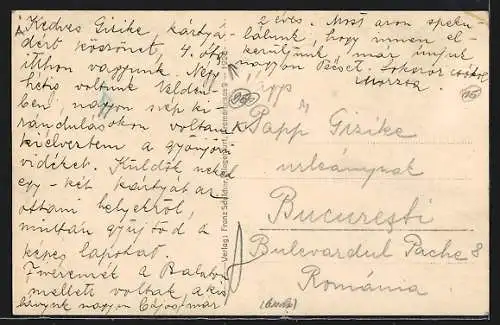 Kedves Gizike, kártyá-
dért köszönet, 4. óta
itthon vagyunk. Négy
hétig voltunk Velden
ben, nagyon szép ki-
rándulásokon voltunk
kiélveztem a gyönyörű
vidéket. Küldök neked
egy-két kártyát az
ottani helyekről,
miután gyűjtöd a
képes lapokat.
a Balaton
mellett voltak, a kis
nagyon édes, már
2 éves. Most azon speku-
lálunk, hogy innen el-
kerüljünk, már unjuk
nagyon Bécset. Sokszor csókol
Papp Gizike
urleánynak
Bucureşti
Bulevardul Pache 8
Románia